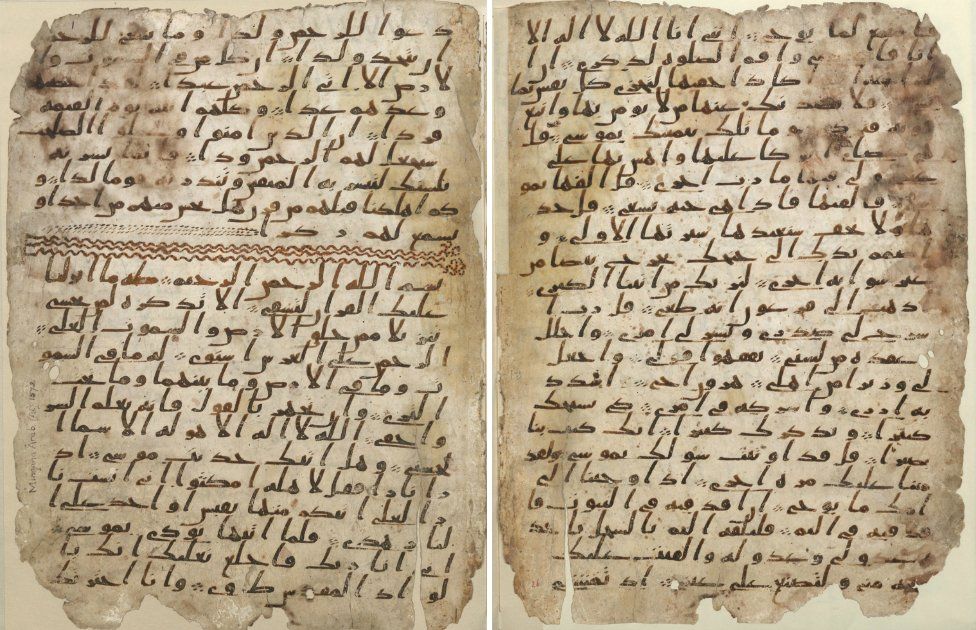 دعوا للرحمن ولدا وما ينبغي للرحمن
ان يتخذ ولدا ان كل من في السموت وا
لارض الا اتي الرحمن عبدا لقد
وعدهم عدا وكلهم اتيه يوم القيمة
فردا ان الذين امنوا وعملوا الصلحت
سيجعل لهم الرحمن ودا فانما يسرنه
بلسنك لتبشر به المتقين وتنذر به قوما لدا و
كم اهلكنا قبلهم من قرن هل تحس منهم من احد او
تسمع لهم ركزا
بسم الله الرحمن الرحيم طه ما انزلنا
عليك القران لتشقى الا تذكرة لمن يخشى
تنزيلا ممن خلق الارض والسموت العلى
الرحمن على العرش استوى له ما في السمو
ت وما في الارض وما بينهما وما تحت
الثرى وان تجهر بالقول فانه يعلم السر
واخفى الله لا اله الا هو له الاسما ا
لحسنى وهل اتيك حديث موسى اذ
را نارا فقل لاهله امكثوا اني انست نا
را لعلي اتيكم منها بقبس او اجد على ا
لنار هدى فلما اتيها نودي يموسى
اني انا ربك فاخلع نعليك انك با
لواد المقدس طوى وانا اخترتك
Mingana Arab 1572
فاستمع لما يوحى انني انا الله لا اله الا
انا واقم الصلوة لذكري ان ا
اكاد اخفيها لتجزى كل نفس بما
فلا يصدنك عنها من لا يومن بها واتبع
هويه فتردى وما تلك بيمينك يموسى قل
هي عصاي اتوكا عليها واهش بها على
غنمي ولي فيها مارب اخرى قل القها يمو
سى فالقيها فاذا هي حية تسعى قل خذ
ها ولا تخف سنعيدها سيرتها الاولى و
اضمم يدك الى جنحك تخرج بيضا من
غير سو اية اخرى لنريك من ايتنا الكبرى
اذهب الى فرعون انه طغى قل رب ا
شرح لي صدري ويسر لي امري واحلل
عقدة من لسني يفقهوا قولي واجعل
لي وزيرا من اهلي هرون اخي اشدد
به ازري واشركه في امري كي نسبحك
كثيرا ونذكرك كثيرا انك كنت بنا
بصيرا قل قد اوتيت سولك يموسى ولقد
مننا عليك مرة اخرى اذ اوحينا الى
امك ما يوحى ان اقذفيه في التبوت فا
قذفيه في اليم فليلقه اليم بالسحل ياخذه
عدو لي وعدو له والقيت عليك
محبة مني ولتصنع على عيني اذ تمشي